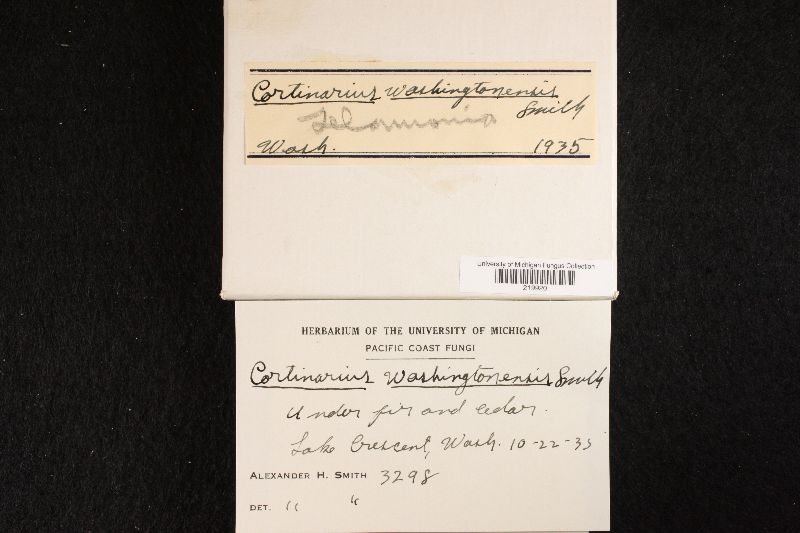 Cortinarius washingtonensis
Smith
Telamonia
Wash. 1935
University of Michigan Fungus Collection
HERBARIUM OF THE UNIVERSITY OF MICHIGAN
PACIFIC COAST FUNGI
Cortinarius washingtonensis Smith
Under fir and cedar.
Lake Crescent, Wash. 10-22-35
ALEXANDER H. SMITH 3298
DET. " "